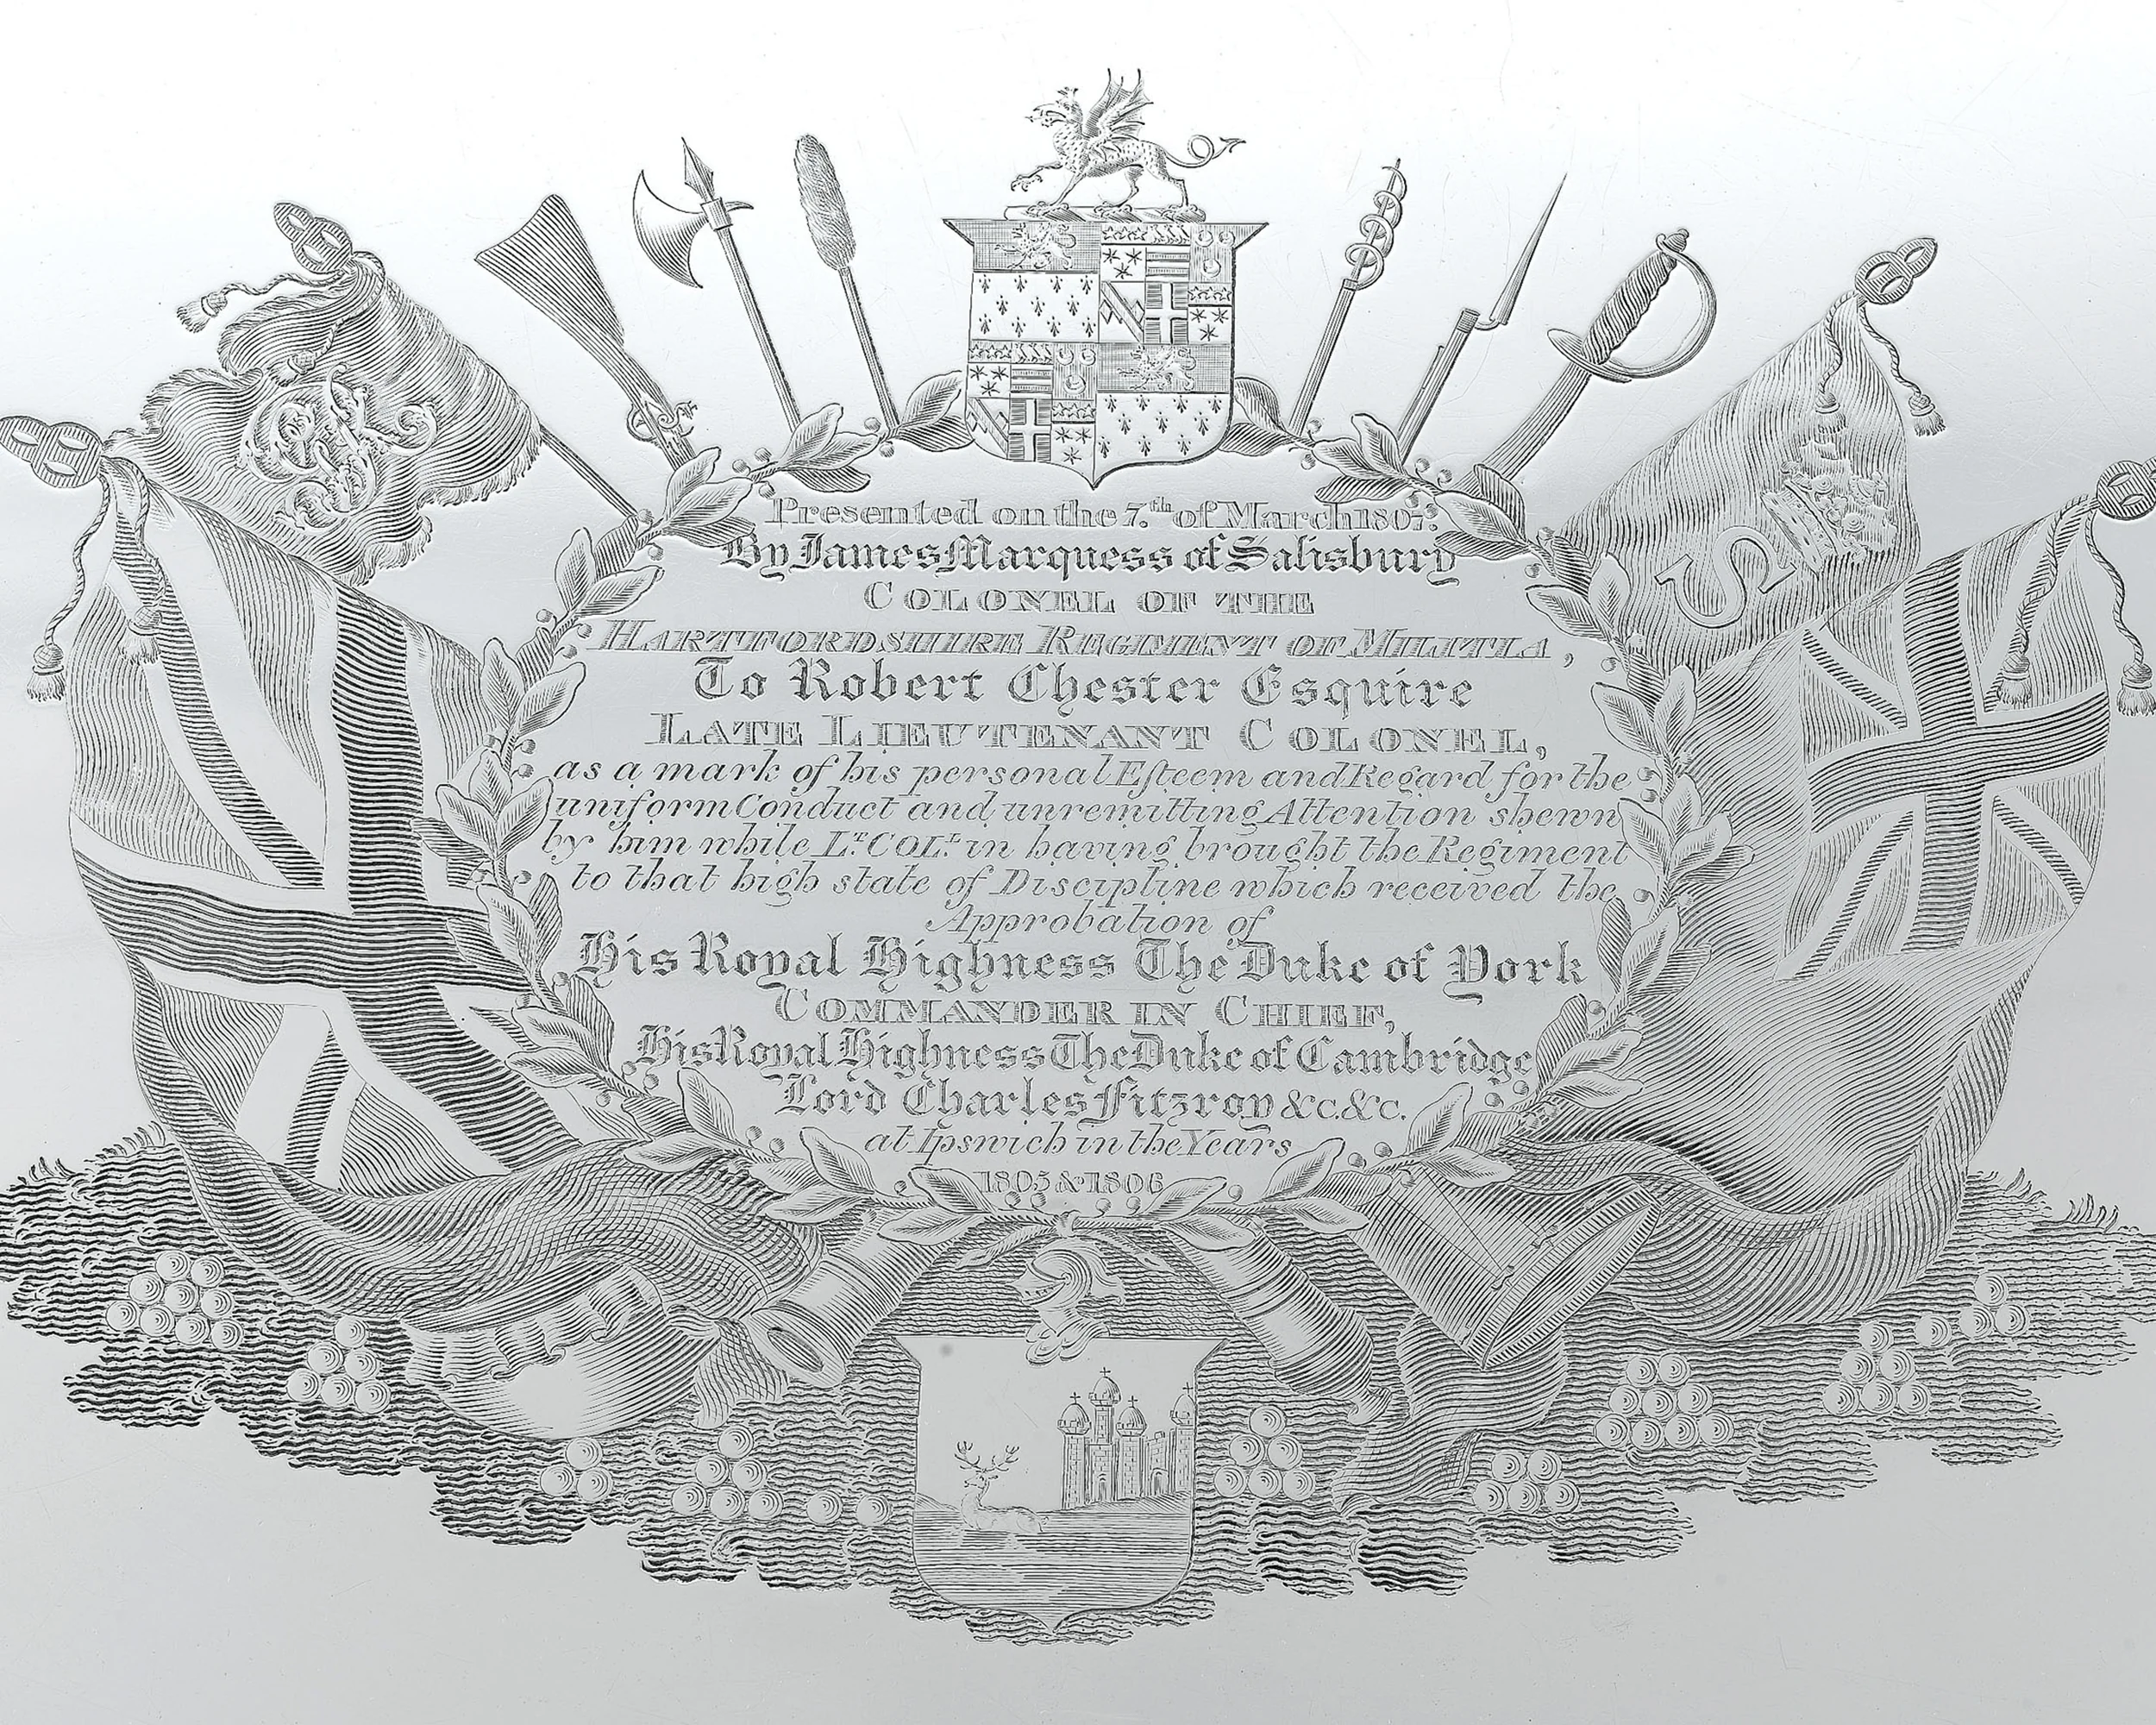 Presented on the 7.th of March 1807.
By James Marquess of Salisbury
COLONEL OF THE
HARTFORDSHIRE REGIMENT OF MILITIA,
To Robert Chester Esquire
LATE LIEUTENANT COLONEL,
as a mark of his personal Eſteem and Regard for the
uniform Conduct and unremitting Attention shewn
by him while Lt. COL.L in having brought the Regiment
to that high state of Discipline which received the
Approbation of
His Royal Highness The Duke of York
COMMANDER IN CHIEF,
His Royal Highness The Duke of Cambridge
Lord Charles Fitzroy &c. &c.
at Ipswich in the Years
1805 & 1806
S